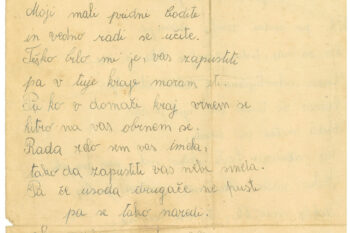 Moji mali pridne bodite
in vedno radi se učite.
Teško zelo mi je, vas zapustiti
pa v tuje kraje moram iti.
Pa ko v domači kraj vrnem se
hitro na vas obrnem se.
Rada zelo sem vas imela,
tako da zapustiti vas nebi smela.
Pa če usoda drugače ne pusti
pa se tako naredi.